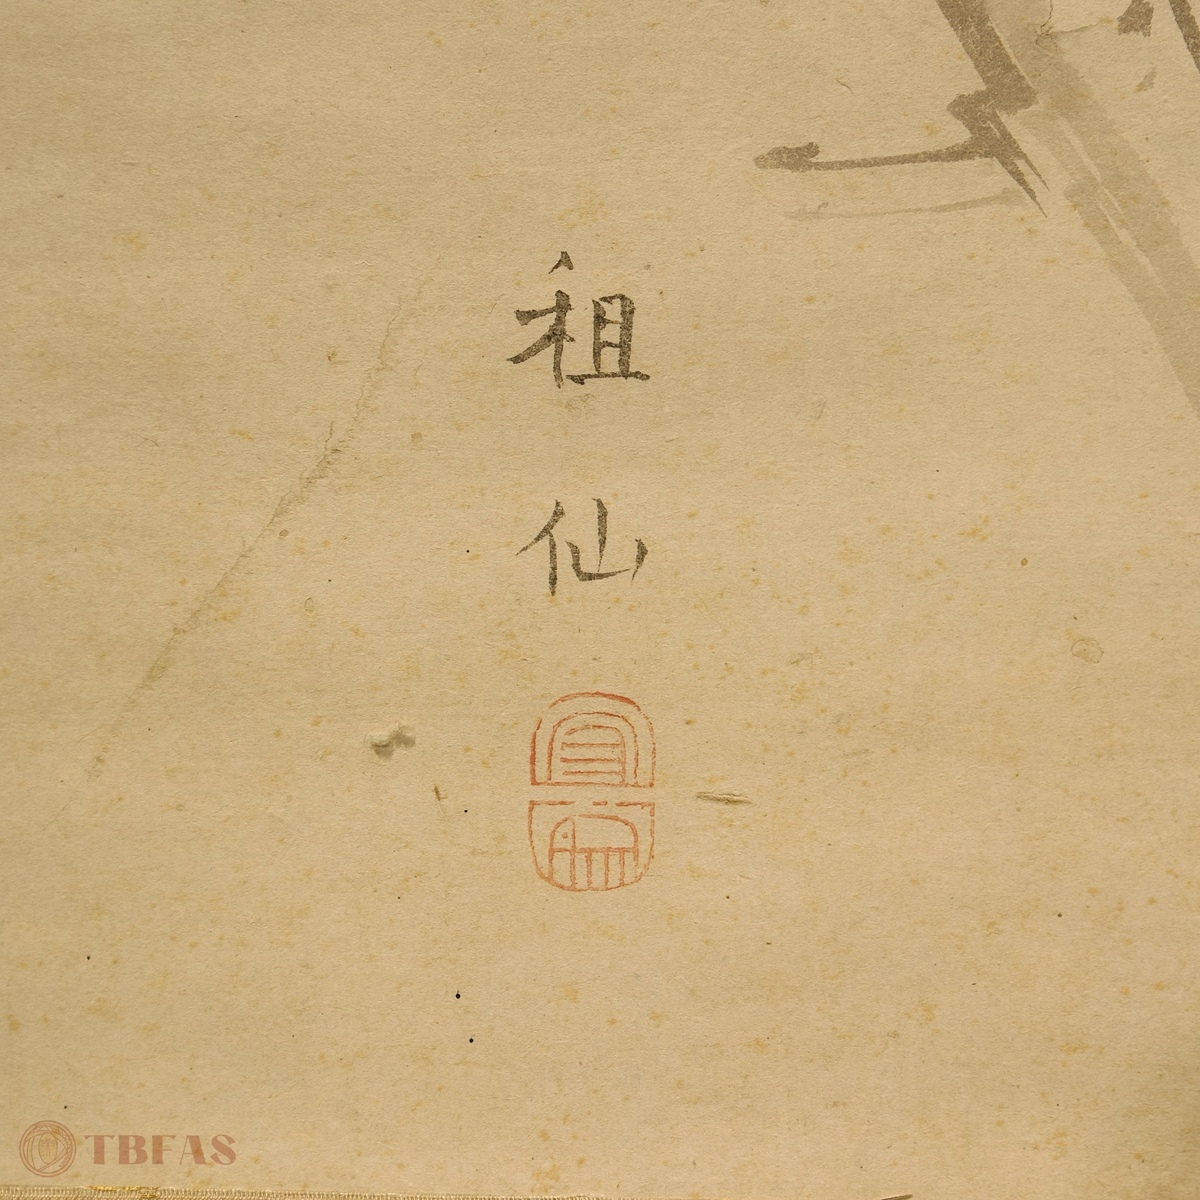 祖
仙
TBFAS